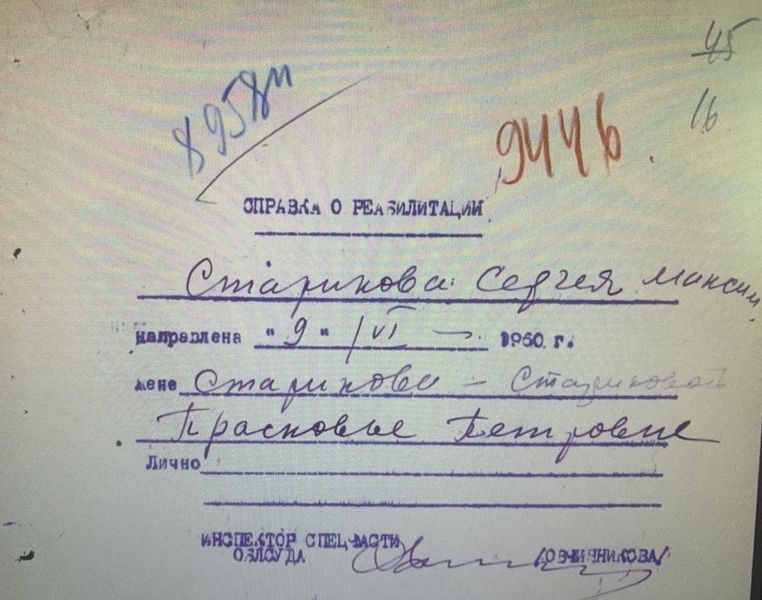 45
8958м
9446.
16
СПРАВКА О РЕАБИЛИТАЦИИ
Старикова Сергея Максим.
направлена "9" VI 1960 г.
жене Старикова — Стариковой
Прасковье Петровне
Лично
ИНСПЕКТОР СПЕЦЧАСТИ
ОБЛСУДА /ОВЧИННИКОВА/